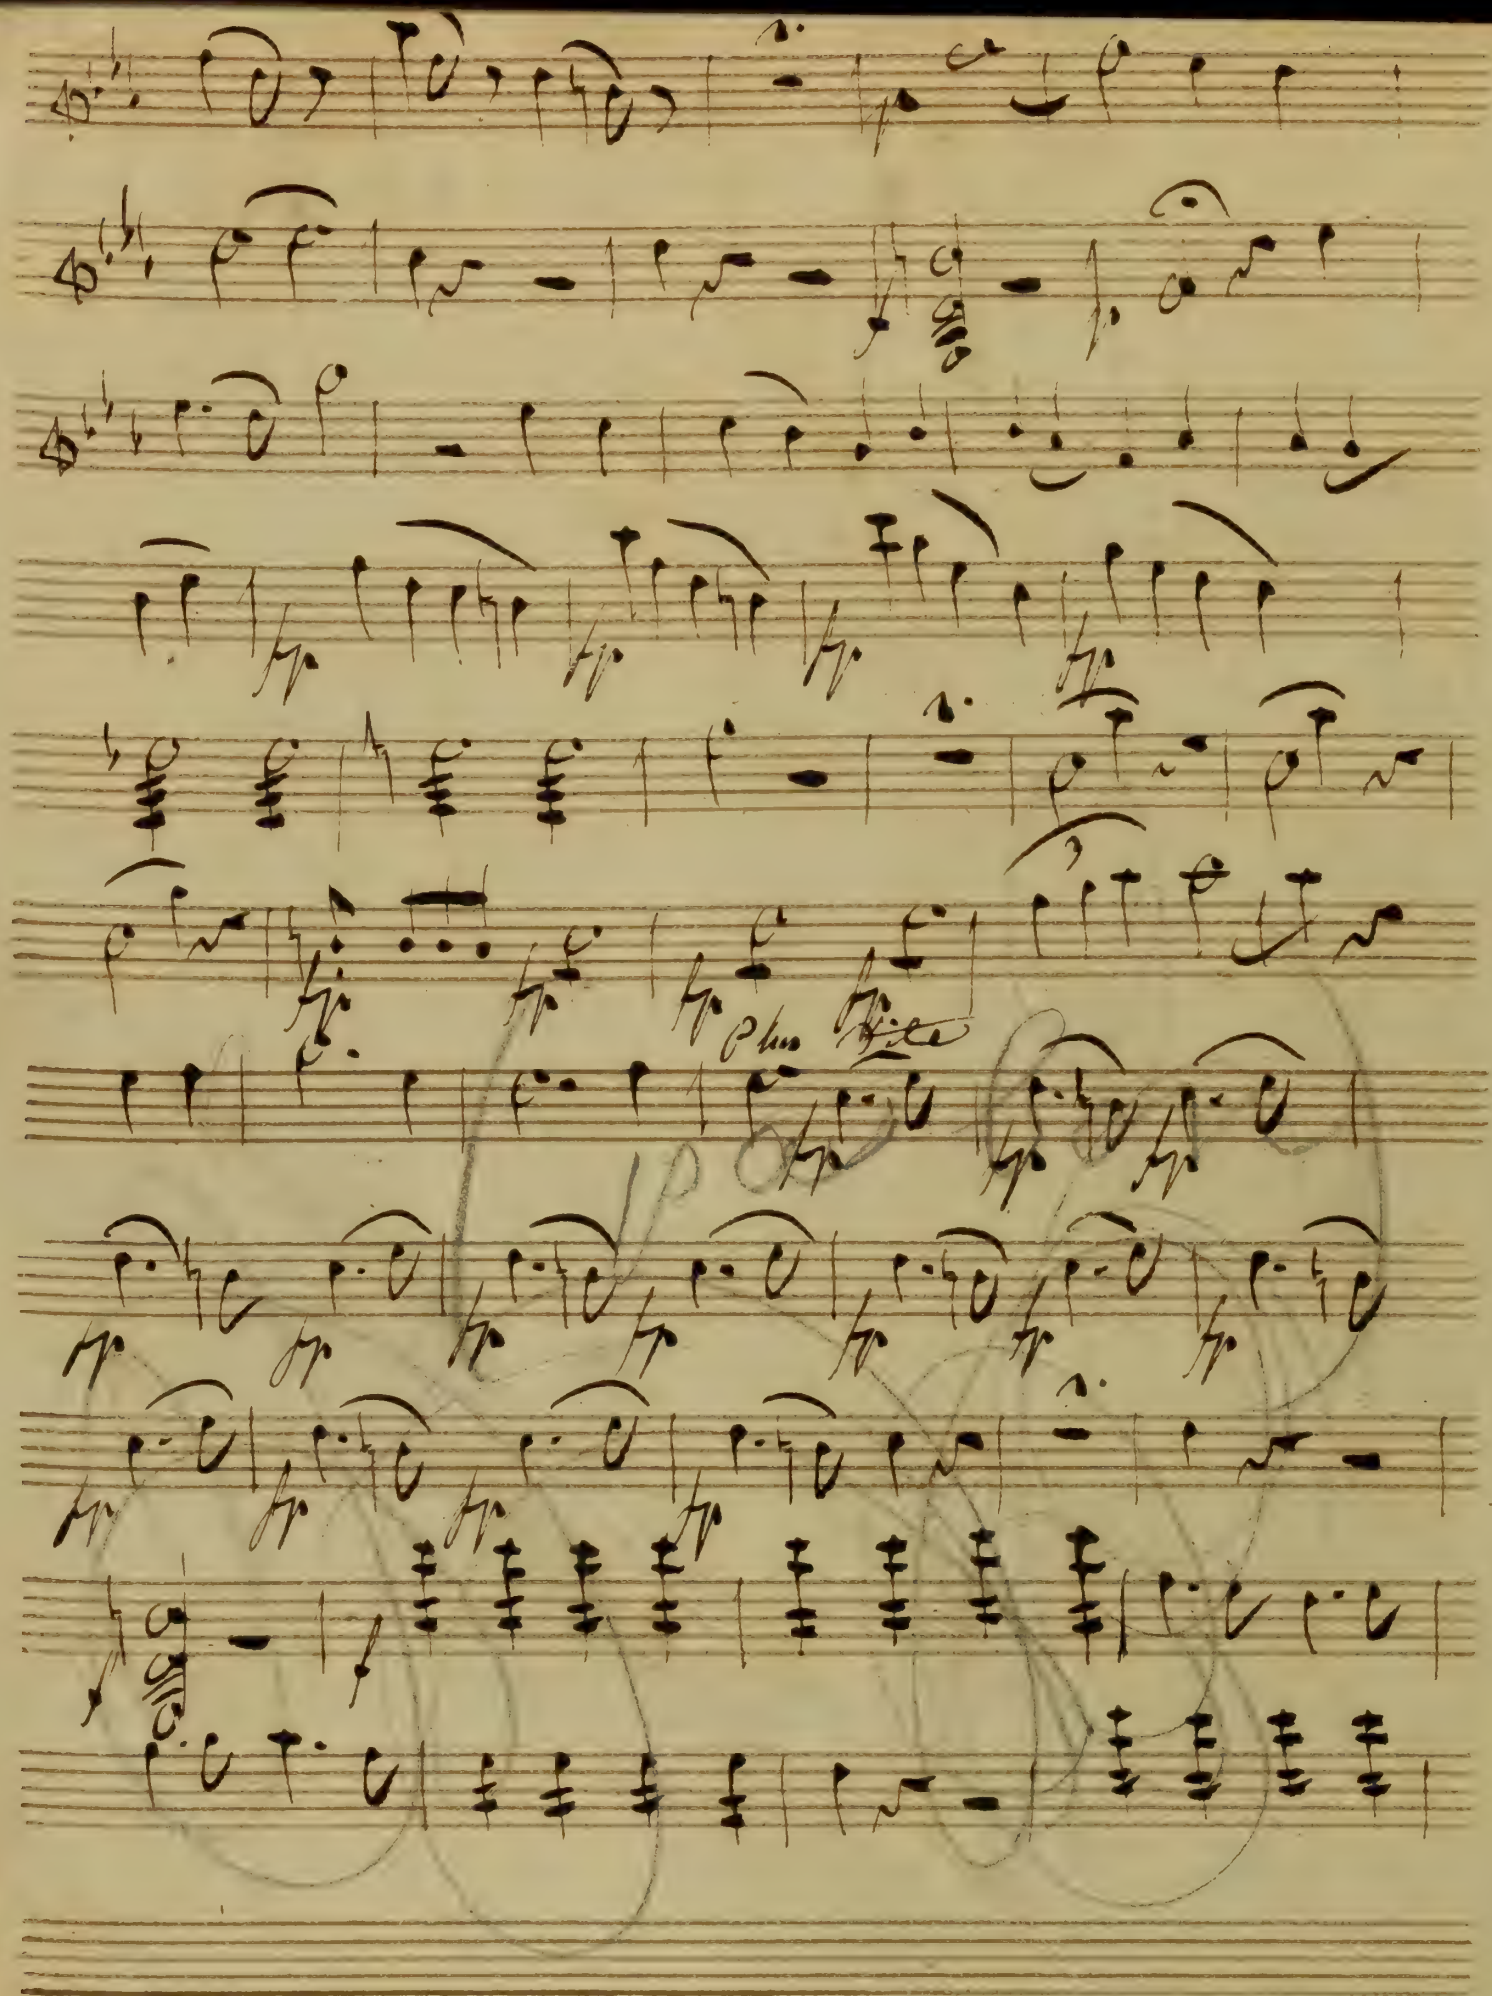 1.
p
f p
fp fp fp fp
1.
3
fp fp fp fp
Plus Vite
fp fp fp
fp fp fp fp fp fp fp
1.
fp fp fp fp
f f